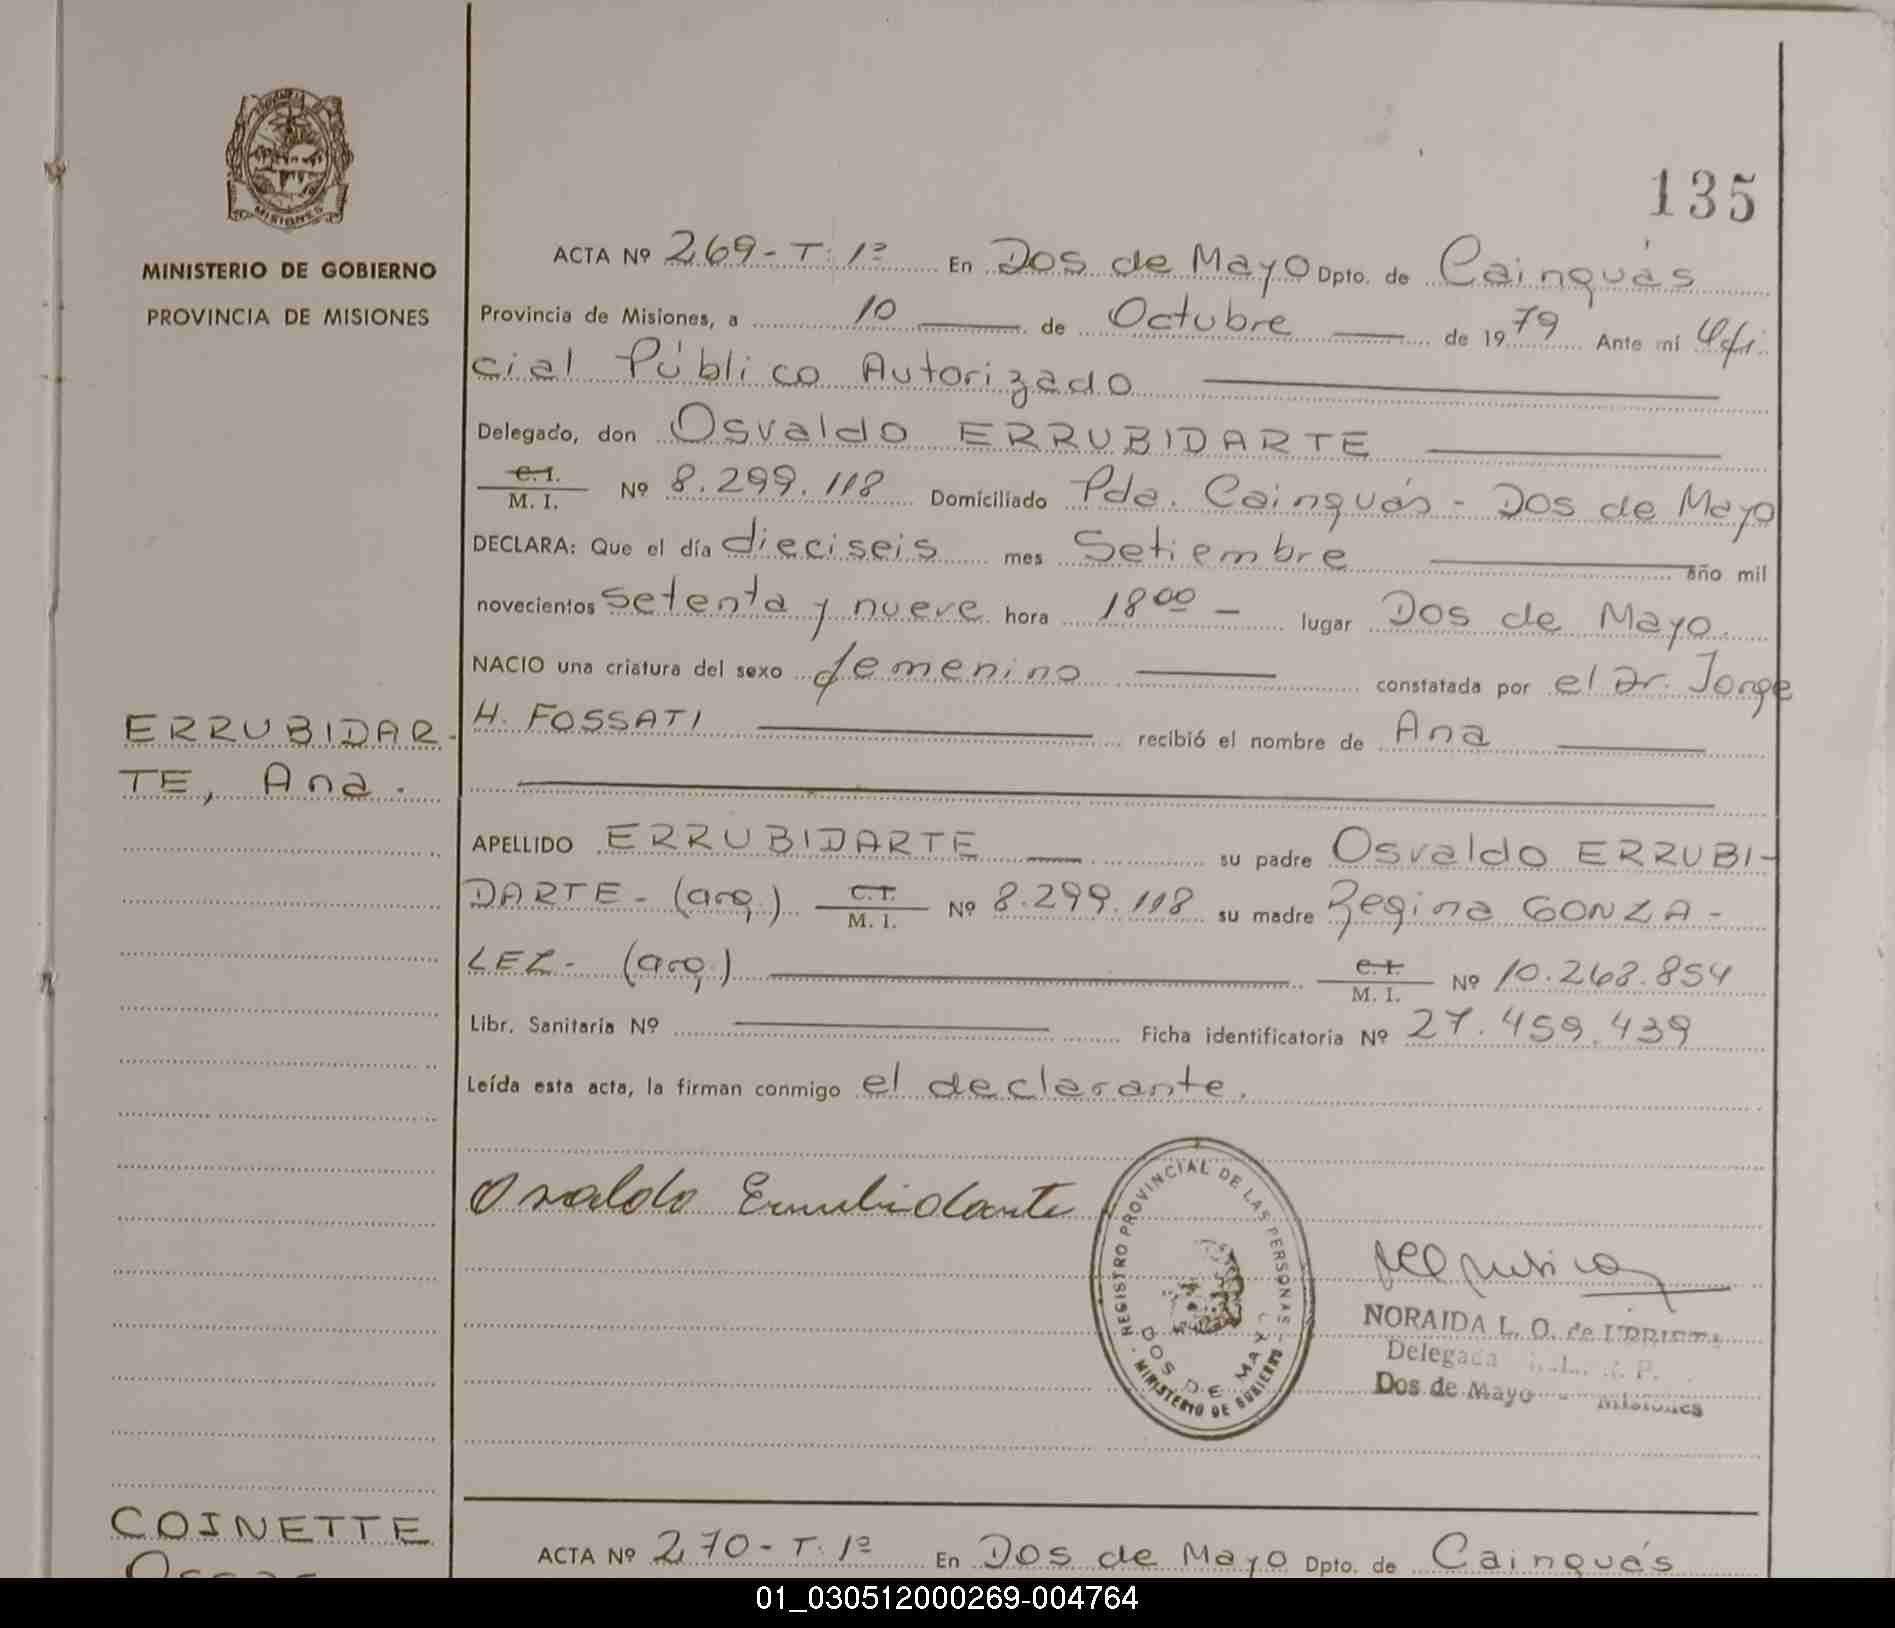 MISIONES
MINISTERIO DE GOBIERNO
PROVINCIA DE MISIONES
135
ACTA Nº 269 - T. 1º En Dos de Mayo Dpto. de Cainguás
Provincia de Misiones, a 10 de Octubre de 1979 Ante mí Ofi
cial Público Autorizado
Delegado, don Osvaldo ERRUBIDARTE
C. I.
M. I. Nº 8.299.118 Domiciliado Pda. Cainguás - Dos de Mayo
DECLARA: Que el día dieciseis mes Setiembre año mil
novecientos setenta y nueve hora 18 00 - lugar Dos de Mayo
NACIO una criatura del sexo femenino constatada por el Dr. Jorge
H. FOSSATI recibió el nombre de Ana
ERRUBIDAR-
TE, Ana.
APELLIDO ERRUBIDARTE su padre Osvaldo ERRUBI-
DARTE - (arg.) C. I. M. I. Nº 8.299.118 su madre Regina GONZA-
LEZ - (arg.) C. I. M. I. Nº 10.268.854
Libr. Sanitaria Nº Ficha identificatoria Nº 27.459.439
Leída esta acta, la firman conmigo el declarante.
Osvaldo Errubidarte
REGISTRO PROVINCIAL DE LAS PERSONAS
DOS DE MAYO
MINISTERIO DE GOBIERNO
NORAIDA L. O. de
Delegada
Dos de Mayo - Misiones
COINETTE
ACTA Nº 270 - T. 1º En Dos de Mayo Dpto. de Cainguás
01_030512000269-004764